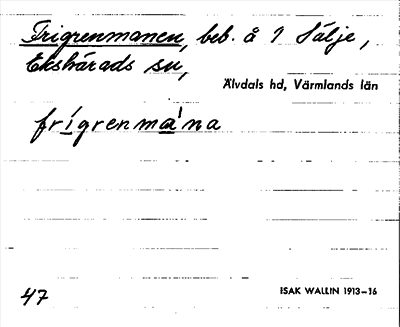 Frigrenmanen, beb. å 1 Sälje,
Ekshärads sn,
Älvdals hd, Värmlands län
frígrenmàna
47
ISAK WALLIN 1913–16